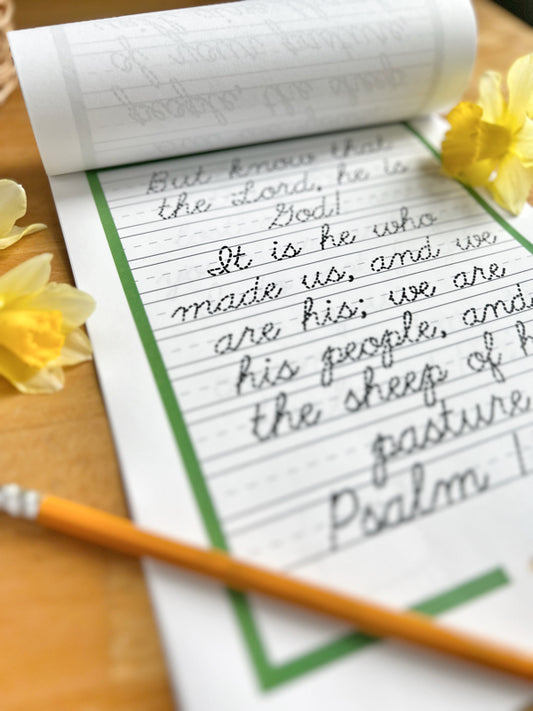 But know that
the Lord, he is
God!
It is he who
made us, and we
are his; we are
his people, and
the sheep of h
pasture
Psalm 1